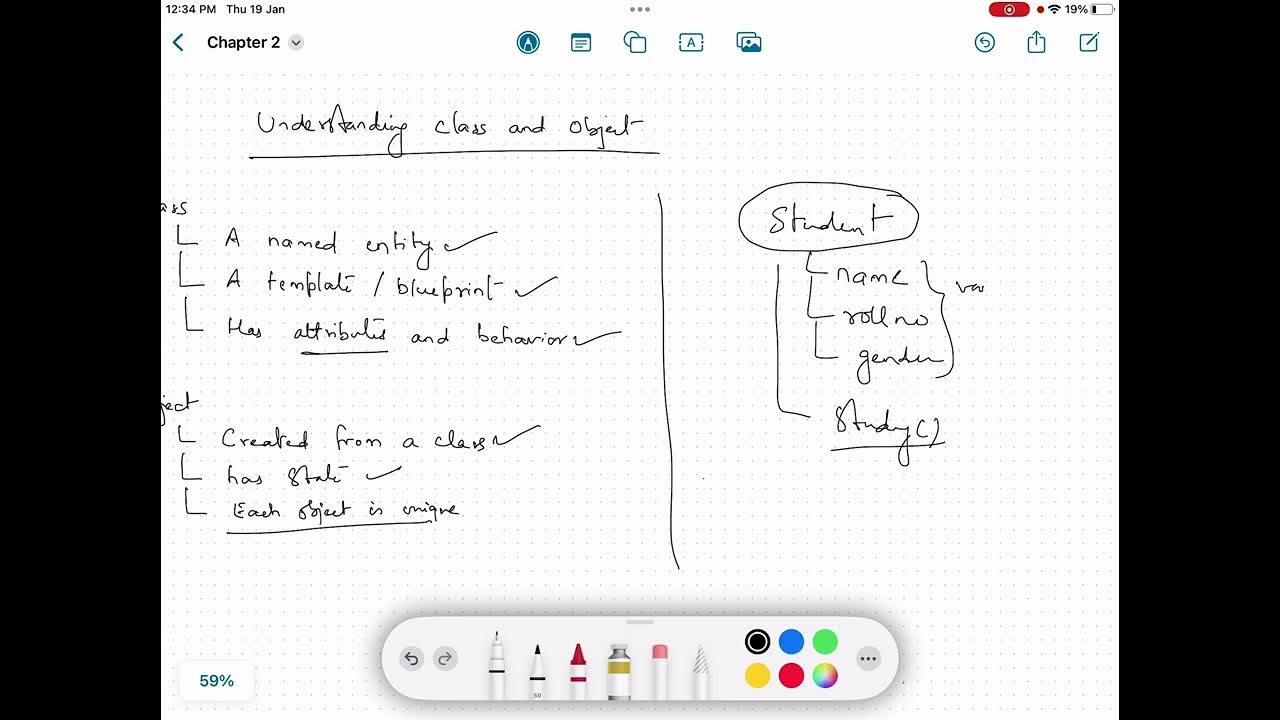 12:34 PM Thu 19 Jan
19%
Chapter 2
A
Understanding class and object
ass
A named entity
A template / blueprint
Has attributes and behavior
ject
Created from a class
has state
Each object is unique
Student
name
roll no
gender
va
Study()
50
59%